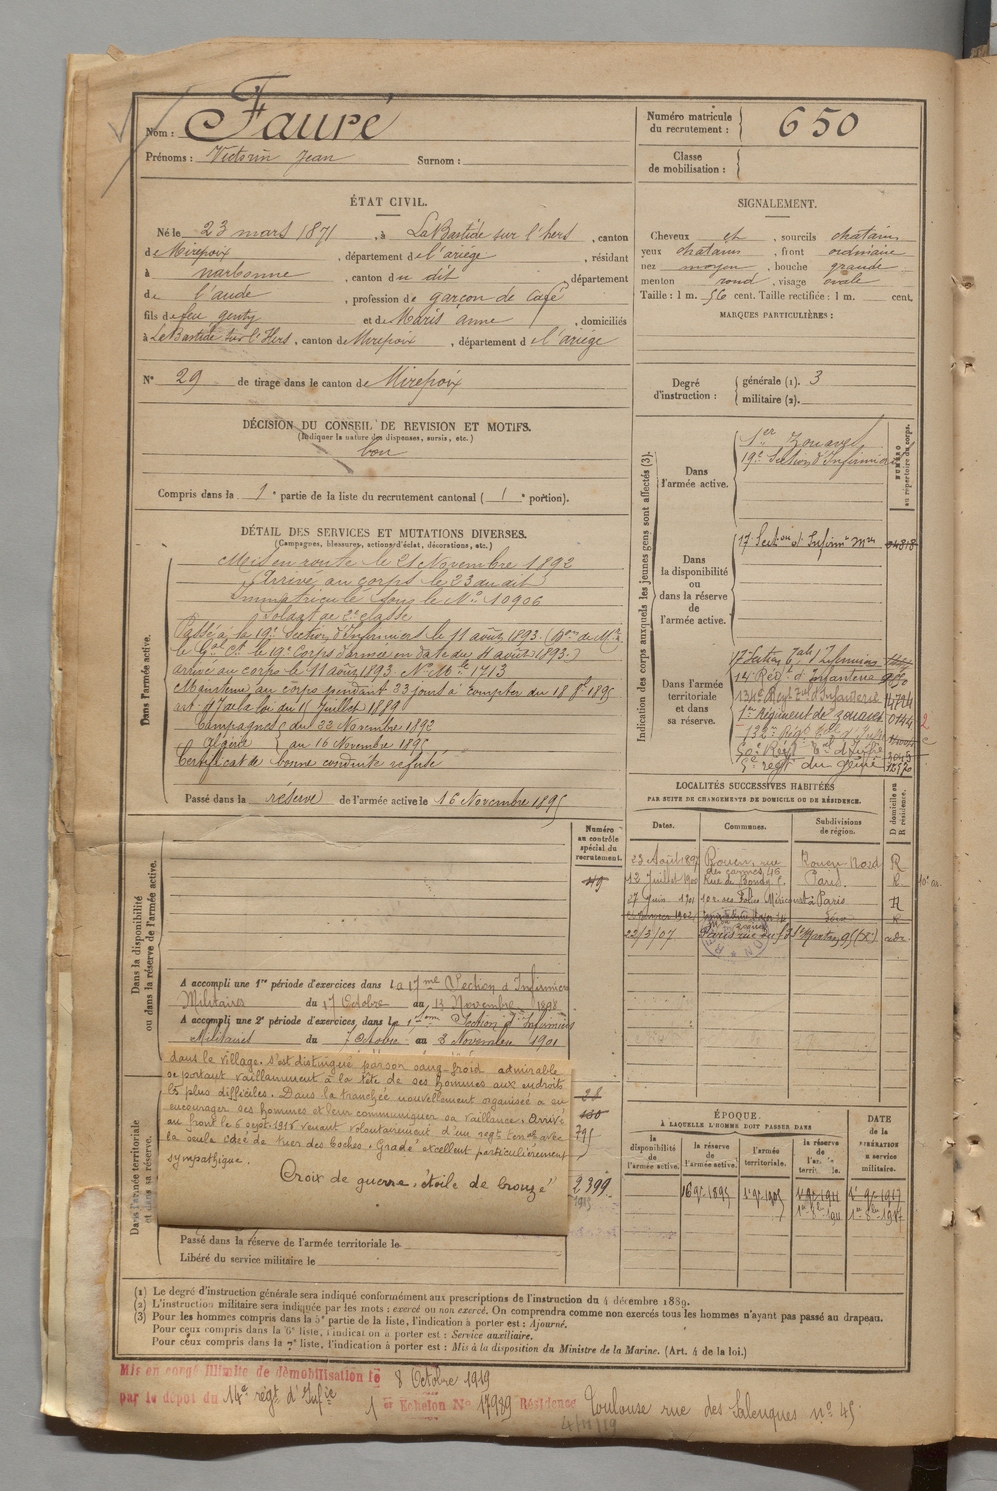 Nom : Fauré
Prénoms : Victorin Jean Surnom :
Numéro matricule du recrutement : 650
Classe de mobilisation :
ÉTAT CIVIL.
Né le 23 mars 1871, à LaBastide sur l'hers, canton
de Mirepoix, département de l'ariège, résidant
à narbonne, canton du dit, département
de l'aude, profession de garçon de café
fils de feu genty et de Maris anne, domiciliés
à LaBastide sur l'Hers, canton de Mirepoix, département de l'ariège
N° 29 de tirage dans le canton de Mirepoix
SIGNALEMENT.
Cheveux et, sourcils chatains
yeux chatains, front ordinaire
nez moyen, bouche grande
menton rond, visage ovale
Taille : 1 m. 56 cent. Taille rectifiée : 1 m. cent.
MARQUES PARTICULIÈRES :
Degré d'instruction : générale (1). 3
militaire (2).
DÉCISION DU CONSEIL DE REVISION ET MOTIFS.
(Indiquer la nature des dispenses, sursis, etc.)
bon
Compris dans la 1e partie de la liste du recrutement cantonal ( 1e portion).
DÉTAIL DES SERVICES ET MUTATIONS DIVERSES.
(Campagnes, blessures, actions d'éclat, décorations, etc.)
Dans l'armée active.
Mis en route le 21 Novembre 1892
Arrivé au corps le 23 du dit
Immatriculé sous le No 10906
Soldat de 2e classe
Passé à la 19e Section d'Infirmiers le 11 août 1893.
le 19e Corps d'armée en date du 4 août 1893.)
arrivé au corps le 11 août 1893. No Mle 1713
Maintenu au corps pendant 23 jours à compter du 18 8bre 1895
art. de la loi du 15 Juillet 1889
Campagnes du 22 Novembre 1892
Algérie au 16 Novembre 1895
Certificat de bonne conduite refusé
Passé dans la réserve de l'armée active le 16 Novembre 1895
Indication des corps auxquels les jeunes gens sont affectés (3).
NUMÉRO au répertoire du corps.
Dans l'armée active.
1er Zouaves
19e Section d'Infirmiers
Dans la disponibilité ou dans la réserve de l'armée active.
17 Section d'Infirmiers Mres
Dans l'armée territoriale et dans sa réserve.
17 Section d'Infirmiers
14e Régt d'Infanterie
134e Régt d'Infanterie
1er Régiment de zouaves 0144
132e Régt
5e regt du génie
LOCALITÉS SUCCESSIVES HABITÉES
PAR SUITE DE CHANGEMENTS DE DOMICILE OU DE RÉSIDENCE.
Dates. Communes. Subdivisions de région. D domicile ou R résidence.
23 Août 1897 Rouen, rue des carmes, 46 Rouen Nord R
12 Juillet 1900 Rue de Bondy Paris. R
27 Juin 1901 Paris R
22/3/07 Paris rue du fg St Martin
Dans la disponibilité ou dans la réserve de l'armée active.
Numéro au contrôle spécial du recrutement.
A accompli une 1re période d'exercices dans la 17me Section d'Infirmiers
Militaires du 17 Octobre au 13 Novembre 1898
A accompli une 2e période d'exercices dans la Section d'Infirmiers
Militaires du 7 Octobre au 3 Novembre 1901
Dans l'armée territoriale et dans sa réserve.
dans le village. S'est distingué par son sang-froid admirable
se portant vaillamment à la tête de ses hommes aux endroits
les plus difficiles. Dans la tranchée nouvellement organisée a su
encourager ses hommes et leur communiquer sa vaillance. Arrivé
au front le 6 sept. 1915 venant volontairement d'un regt terral avec
la seule idée de tuer des boches. Gradé excellent particulièrement
sympathique.
Croix de guerre, étoile de bronze"
795
2399
Passé dans la réserve de l'armée territoriale le
Libéré du service militaire le
ÉPOQUE.
A LAQUELLE L'HOMME DOIT PASSER DANS
la disponibilité de l'armée active. la réserve de l'armée active. l'armée territoriale. la réserve de l'armée territoriale.
DATE de la LIBÉRATION du service militaire.
(1) Le degré d'instruction générale sera indiqué conformément aux prescriptions de l'instruction du 4 décembre 1889.
(2) L'instruction militaire sera indiquée par les mots : exercé ou non exercé. On comprendra comme non exercés tous les hommes n'ayant pas passé au drapeau.
(3) Pour les hommes compris dans la 5e partie de la liste, l'indication à porter est : Ajourné.
Pour ceux compris dans la 6e liste, l'indication à porter est : Service auxiliaire.
Pour ceux compris dans la 7e liste, l'indication à porter est : Mis à la disposition du Ministre de la Marine. (Art. 4 de la loi.)
Mis en congé illimité de démobilisation le 8 Octobre 1919
par le dépôt du 14e régt d'Infie
1er Echelon No 17989 Résidence Toulouse rue des Salenques no 45
4/11/19